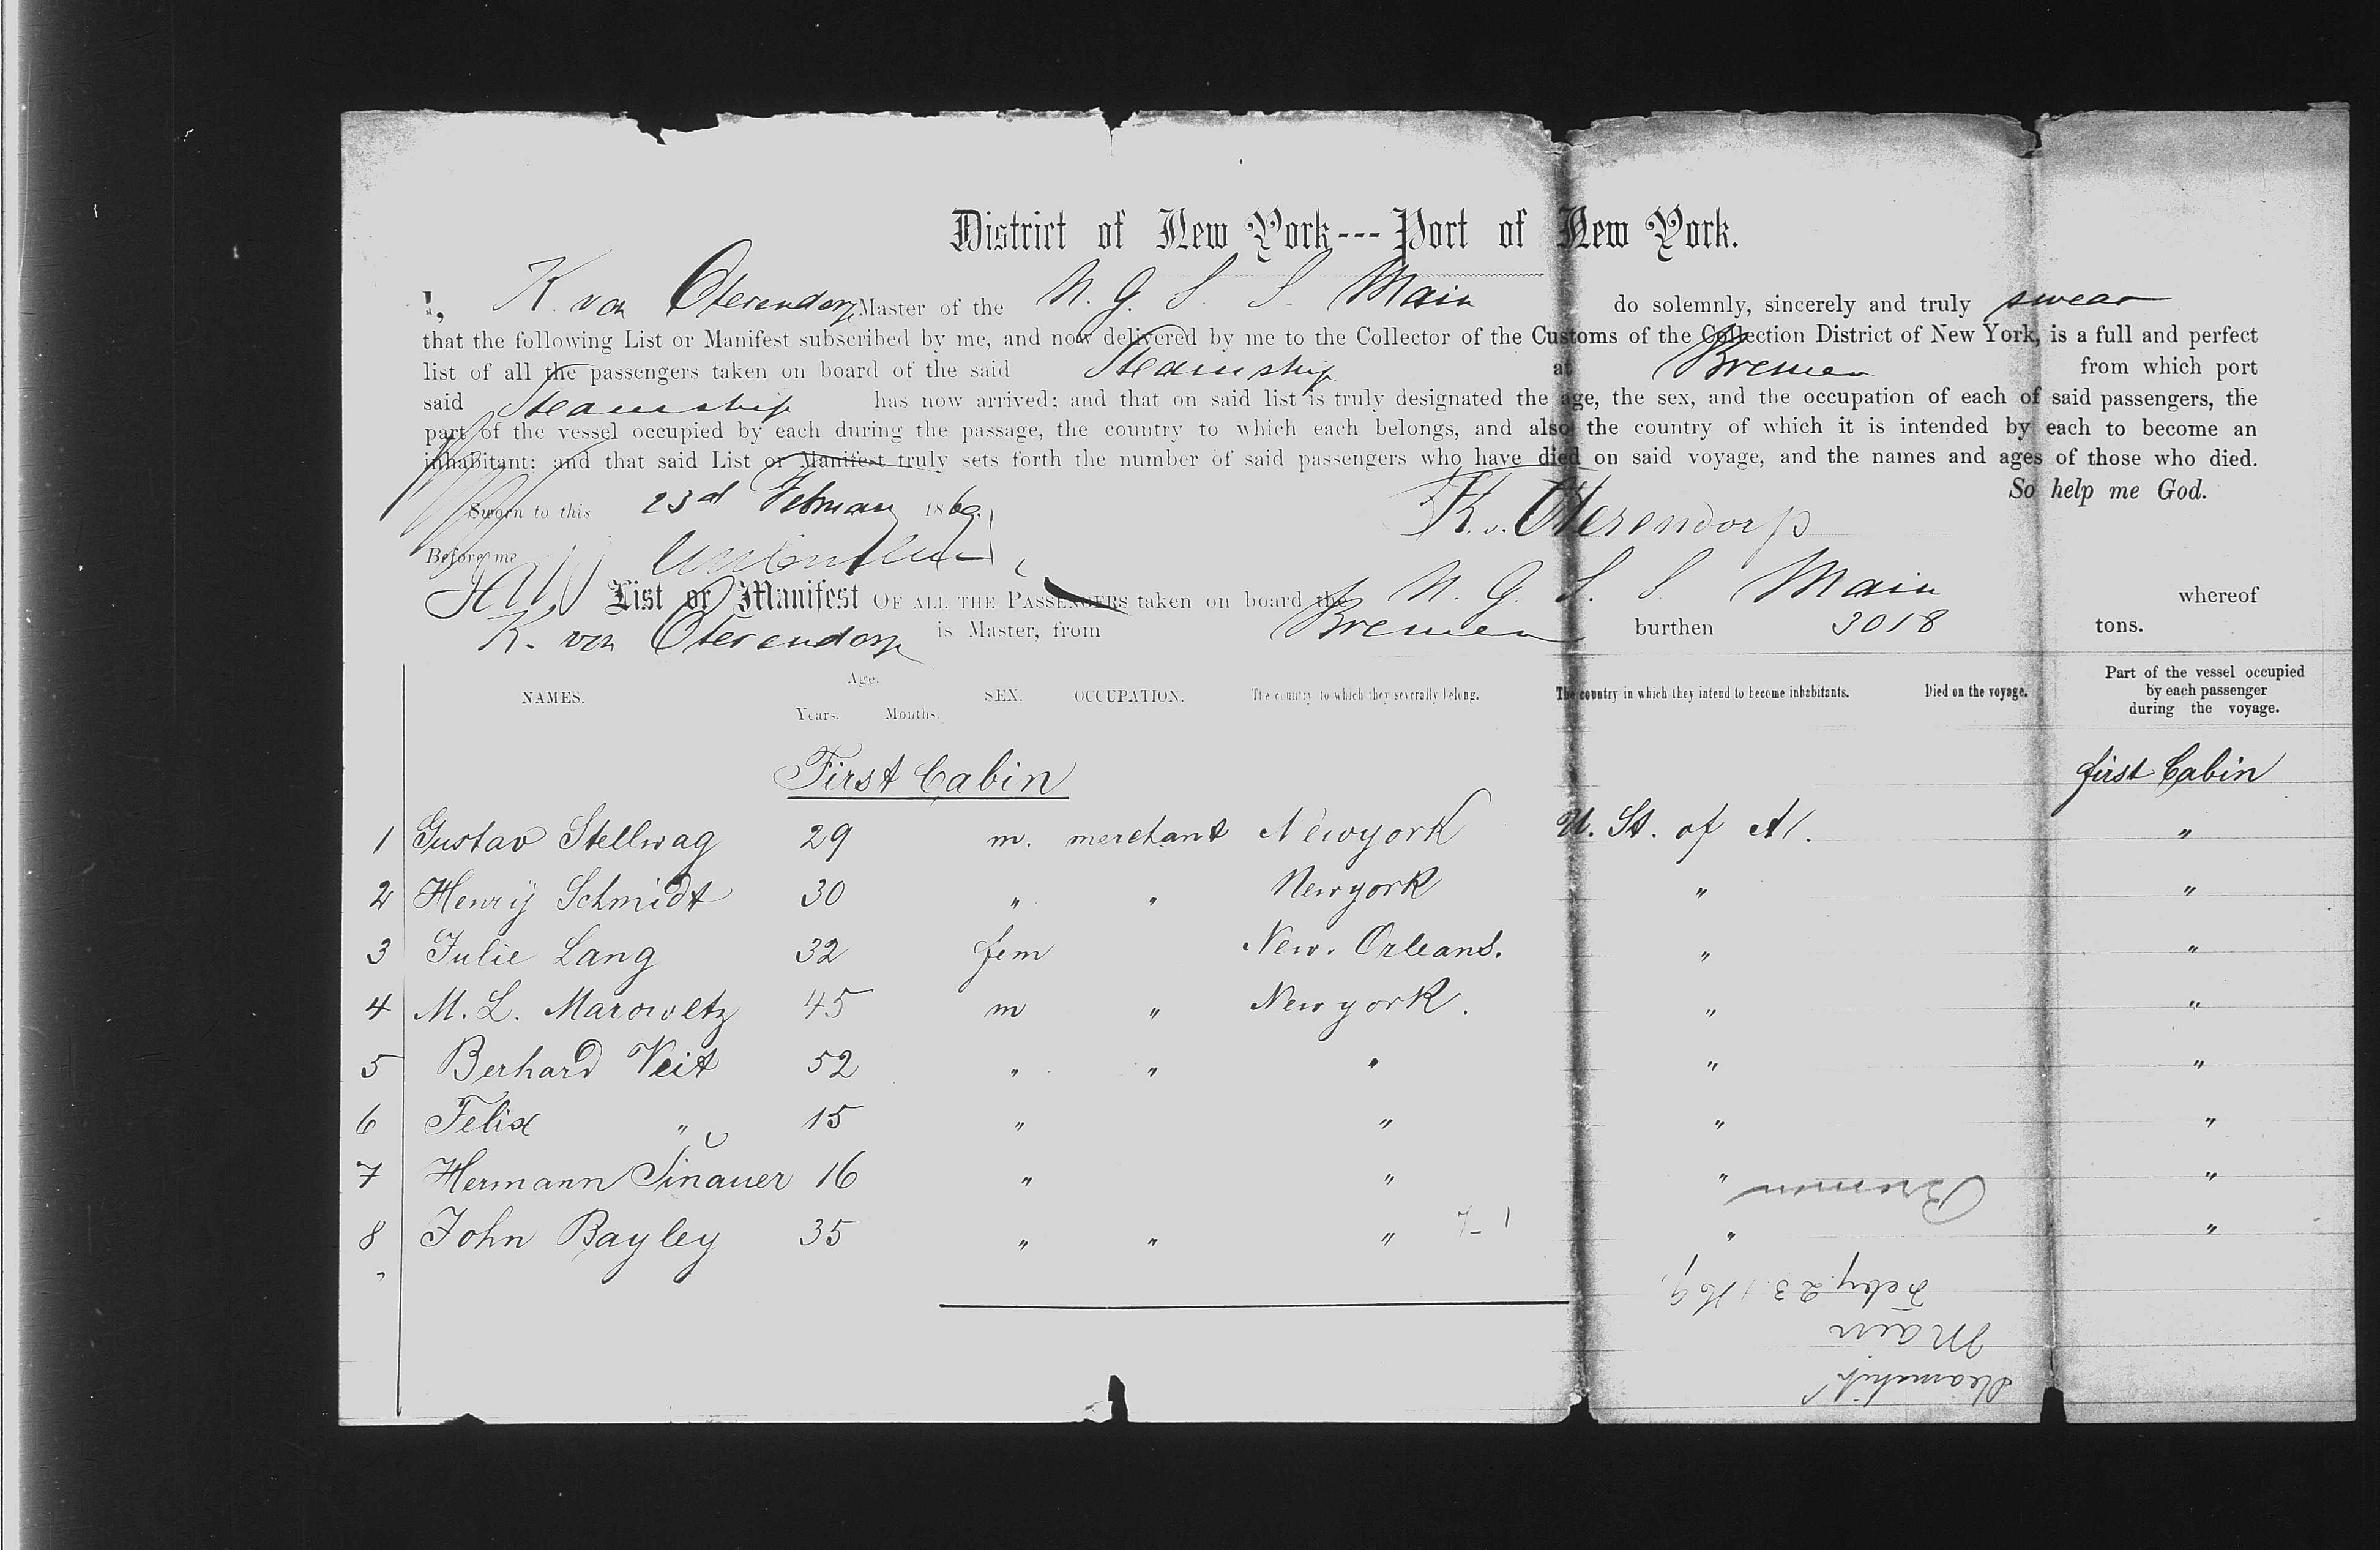 District of New York --- Port of New York.
I, K. von Oterendorp Master of the N. G. S. S. Main do solemnly, sincerely and truly swear
that the following List or Manifest subscribed by me, and now delivered by me to the Collector of the Customs of the Collection District of New York, is a full and perfect
list of all the passengers taken on board of the said Steamship at Bremen from which port
said Steamship has now arrived: and that on said list is truly designated the age, the sex, and the occupation of each of said passengers, the
part of the vessel occupied by each during the passage, the country to which each belongs, and also the country of which it is intended by each to become an
inhabitant: and that said List or Manifest truly sets forth the number of said passengers who have died on said voyage, and the names and ages of those who died.
So help me God.
Sworn to this 23d February 1869. K. v. Oterendorp
Before me
List or Manifest OF ALL THE PASSENGERS taken on board the N. G. S. S. Main whereof
K. von Oterendorp is Master, from Bremen burthen 3018 tons.
NAMES. Age. Years. Months. SEX. OCCUPATION. The country to which they severally belong. The country in which they intend to become inhabitants. Died on the voyage. Part of the vessel occupied by each passenger during the voyage.
First Cabin first Cabin
1 Gustav Stellwag 29 m. merchant Newyork U. St. of A. "
2 Henry Schmidt 30 " " Newyork " "
3 Julie Lang 32 fem New. Orleans. " "
4 M. L. Marowetz 45 m " Newyork. " "
5 Berhard Veit 52 " " " " "
6 Felix " 15 " " " "
7 Hermann Sinauer 16 " " " "
8 John Bayley 35 " " " " "
Steamship
Main
Feby. 23. 1869.
Bremen